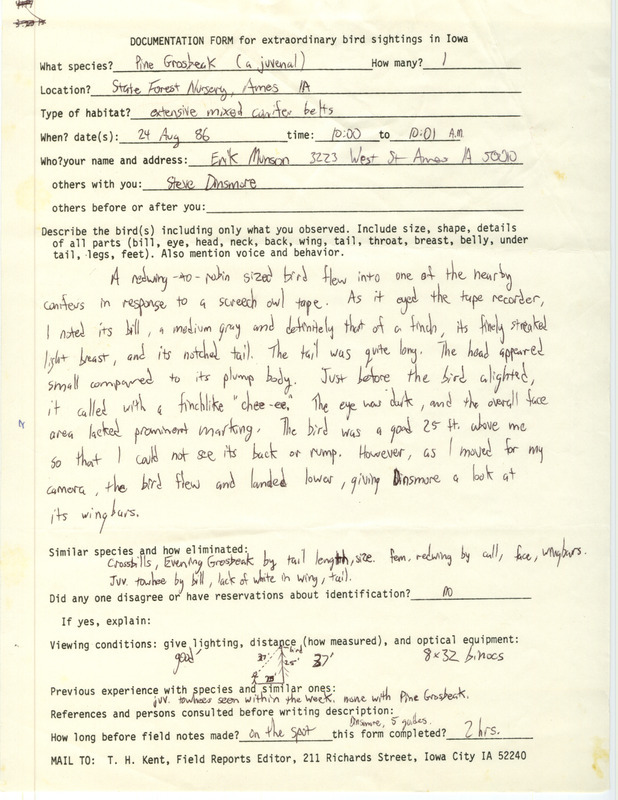 DOCUMENTATION FORM for extraordinary bird sightings in Iowa
What species? Pine Grosbeak (a juvenal) How many? 1
Location? State Forest Nursery, Ames IA
Type of habitat? extensive mixed conifer belts
When? date(s): 24 Aug 86 time: 10:00 to 10:01 A.M.
Who?your name and address: Erik Munson 3223 West St Ames IA 50010
others with you: Steve Dinsmore
others before or after you:
Describe the bird(s) including only what you observed. Include size, shape, details
of all parts (bill, eye, head, neck, back, wing, tail, throat, breast, belly, under
tail, legs, feet). Also mention voice and behavior.
A redwing-to-robin sized bird flew into one of the nearby
conifers in response to a screech owl tape. As it eyed the tape recorder,
I noted its bill, a medium gray and definitely that of a finch, its finely streaked
light breast, and its notched tail. The tail was quite long. The head appeared
small compared to its plump body. Just before the bird alighted,
it called with a finchlike "chee-ee." The eye was dark, and the overall face
area lacked prominent marking. The bird was a good 25 ft. above me
so that I could not see its back or rump. However, as I moved for my
camera, the bird flew and landed lower, giving Dinsmore a look at
its wingbars.
Similar species and how eliminated:
Crossbills, Evening Grosbeak by tail length, size. fem. redwing by call, face, wingbars.
Juv. towhee by bill, lack of white in wing, tail.
Did any one disagree or have reservations about identification? no
If yes, explain:
Viewing conditions: give lighting, distance (how measured), and optical equipment:
good 37' bird 25' 28' 37' 8x32 binocs
Previous experience with species and similar ones:
juv. towhees seen within the week. none with Pine Grosbeak.
References and persons consulted before writing description:
Dinsmore, 5 guides.
How long before field notes made? on the spot this form completed? 2 hrs.
MAIL TO: T. H. Kent, Field Reports Editor, 211 Richards Street, Iowa City IA 52240